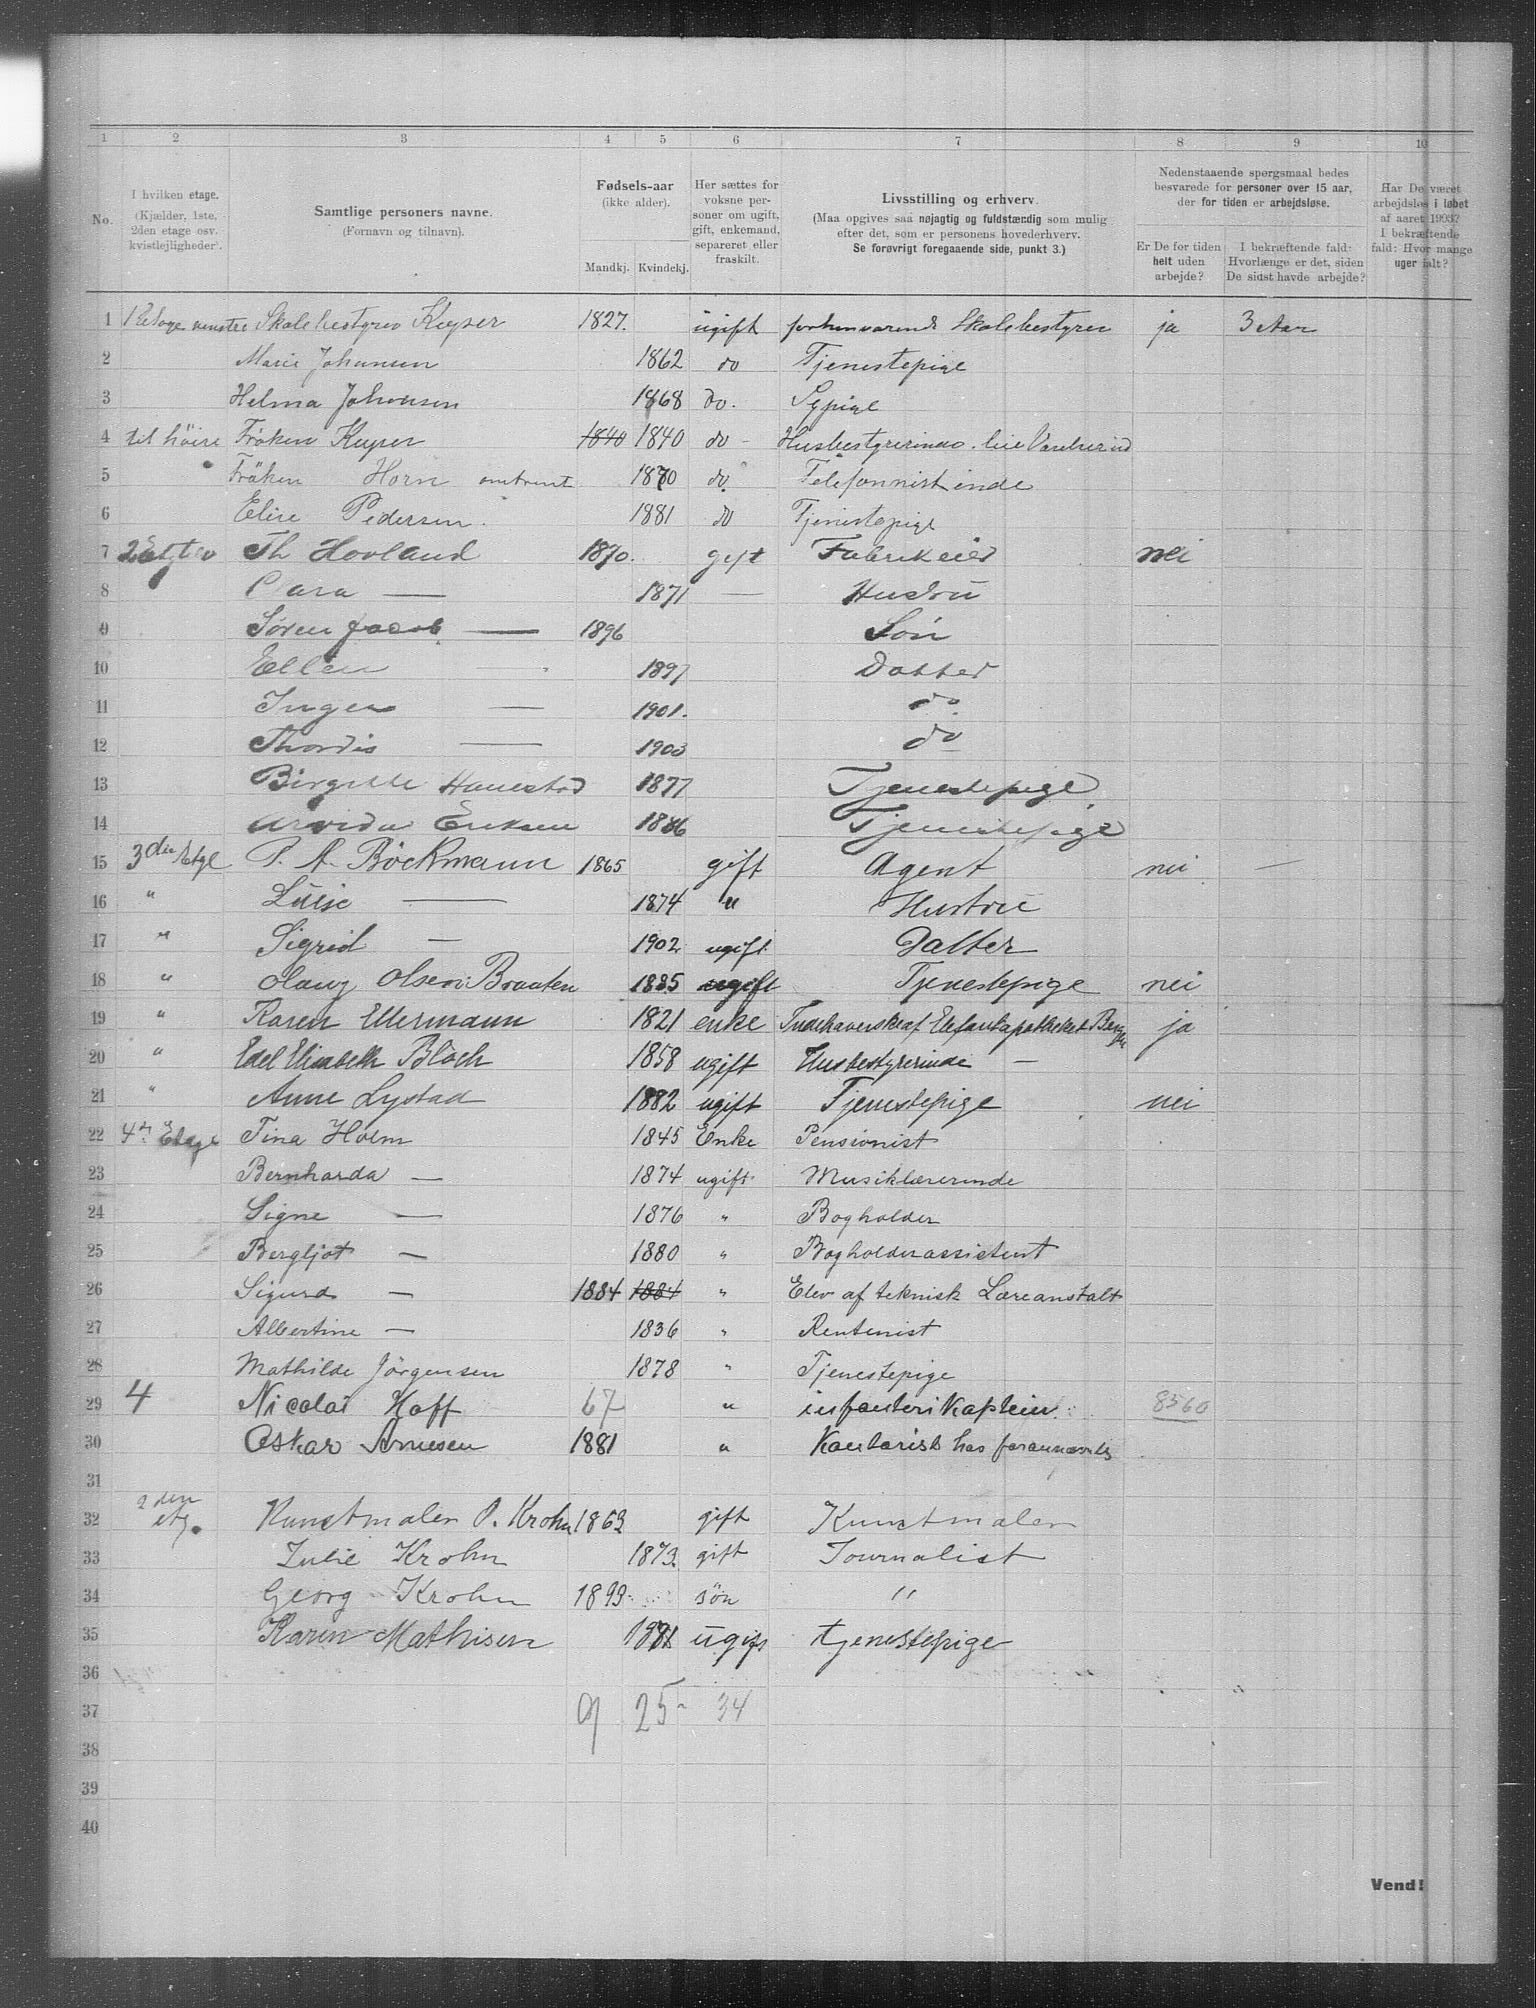 1 2 3 4 5 6 7 8 9 10
No.
I hvilken etage.
(Kjælder, 1ste,
2den etage osv.
kvistlejligheder).
Samtlige personers navne.
(Fornavn og tilnavn).
Fødsels-aar
(ikke alder).
Mandkj. Kvindekj.
Her sættes for
voksne per-
soner om ugift,
gift, enkemand,
separeret eller
fraskilt.
Livsstilling og erhverv.
(Maa opgives saa nøjagtig og fuldstændig som mulig
efter det, som er personens hovederhverv.
Se forøvrigt foregaaende side, punkt 3.)
Nedenstaaende spørgsmaal bedes
besvarede for personer over 15 aar,
der for tiden er arbejdsløse.
Er De for tiden
helt uden
arbejde?
I bekræftende fald:
Hvorlænge er det, siden
De sidst havde arbejde?
Har De været
arbejdsløs i løbet
af aaret 1903?
I bekræftende
fald: Hvor mange
uger ialt?
1 1 Etage venstre Skolebestyrer Keyser 1827. ugift forhenværende Skolebestyrer ja 3 Aar
2 Marie Johansen 1862 do Tjenestepige
3 Helma Johansen 1868 do. Sypige
4 til høire Frøken Keyser 1840 1840 do - Husbestyrerinde
5 Frøken Horn omtrent 1870 do. Telefonnistinde
6 Elise Pedersen. 1881 do Tjenestepige
7 Th Hovland 1870. gift Fabrikeier nei
8 Clara — 1871 — Hustru
9 Søren Jacob — 1896 Søn
10 Ellen — 1897 Datter
11 Inger — 1901. do
12 Thordis — 1903 do
13 Birgitte Hanestad 1877 Tjenestepige
14 Arvida Eriksen 1886 Tjenestepige
15 3die Etge P. A. Böckmann 1865 gift Agent nei —
16 " Luise — 1874 " Hustru
17 " Sigrid — 1902 ugift Datter
18 " Olaug Olsen Braaten 1885 ugift Tjenestepige nei
19 " Karen Ellermann 1821 enke Indehaverske af Elefantapotheket Bergen ja
20 " Edel Elisabeth Bloch 1858 ugift Husbestyrerinde —
21 " Anne Lystad 1882 ugift Tjenestepige nei
22 4de Etage Tina Holm 1845 Enke Pensionist
23 Bernharda — 1874 ugift Musiklærerinde
24 Signe — 1876 " Bogholder
25 Bergljot — 1880 " Bogholderassistent
26 Sigurd — 1884 1884 " Elev af teknisk Læreanstalt
27 Albertine — 1836 " Rentenist
28 Mathilde Jörgensen 1878 " Tjenestepige
29 4 Nicolai Hoff 67 " infanteri Kaptein. 8560
30 Oskar Arnesen 1881 " Kontorist hos forannævnte
31
32 2den etg. Kunstmaler P. Krohn 1863 gift Kunstmaler
33 Julie Krohn 1873. gift Journalist
34 Georg Krohn 1893 søn "
35 Karen Mathisen 1881 ugift tjenestepige
36
37 9 25 34
38
39
40
Vend!